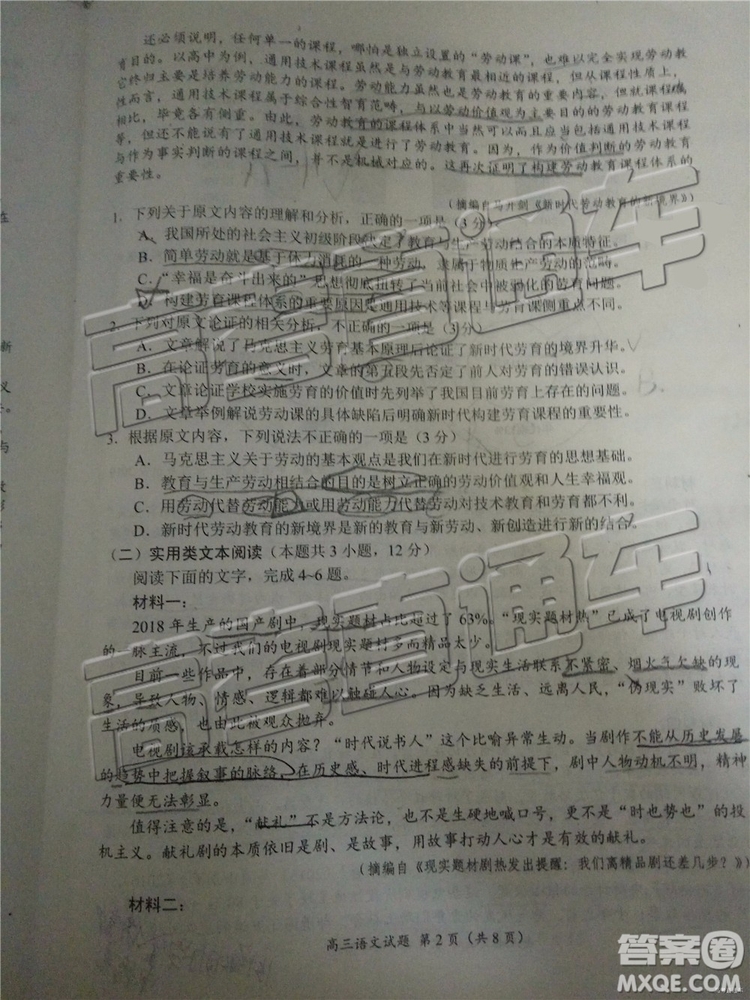 还必须说明，任何单一的课程，哪怕是独立设置的“劳动课”，也难以完全实现劳动教
育目的。以高中为例，通用技术课程虽然是与劳动教育最相近的课程，但从课程性质上，
它终归主要是培养劳动能力的课程。劳动能力虽然也是劳动教育的重要内容，但就课程属
性而言，通用技术课程属于综合性智育范畴，与以劳动价值观为主要目的的劳动教育课程
相比，毕竟各有侧重。由此，劳动教育的课程体系中当然可以而且应当包括通用技术课程
等，但还不能说有了通用技术课程就是进行了劳动教育。因为，作为价值判断的劳动教育
与作为事实判断的课程之间，并不是机械对应的。这再次证明了构建劳动教育课程体系的
重要性。
（摘编自马开剑《新时代劳动教育的新境界》）
1．下列关于原文内容的理解和分析，正确的一项是（3分）
A．我国所处的社会主义初级阶段决定了教育与生产劳动结合的本质特征。
B．简单劳动就是基于体力消耗的一种劳动，隶属于物质生产劳动的范畴。
C．“幸福是奋斗出来的”思想彻底扭转了当前社会中被弱化的劳育方向。
D．构建劳育课程体系的重要原因是通用技术等课程与劳育课侧重点不同。
2．下列对原文论证的相关分析，不正确的一项是（3分）
A．文章解说了马克思主义劳育基本原理后论证了新时代劳育的境界升华。
B．在论证劳育的意义时，文章的第五段先否定了前人对劳育的错误认识。
C．文章论证学校实施劳育的价值时先列举了我国目前劳育上存在的问题。
D．文章举例解说劳动课的具体缺陷后明确新时代构建劳育课程的重要性。
B.
3．根据原文内容，下列说法不正确的一项是（3分）
A．马克思主义关于劳动的基本观点是我们在新时代进行劳育的思想基础。
B．教育与生产劳动相结合的目的是树立正确的劳动价值观和人生幸福观。
C．用劳动代替劳动能力或用劳动能力代替劳动对技术教育和劳育都不利。
D．新时代劳动教育的新境界是新的教育与新劳动、新创造进行新的结合。
（二）实用类文本阅读（本题共3小题，12分）
阅读下面的文字，完成4~6题。
材料一：
2018年生产的国产剧中，现实题材占比超过了63%。“现实题材热”已成了电视剧创作
的一脉主流，不过我们的电视剧现实题材打多而精品太少。
目前一些作品中，存在着部分情节和人物设定与现实生活联系不紧密、烟火气欠缺的现
象，导致人物、情感、逻辑都难以触碰人心。因为缺乏生活、远离人民，“伪现实”败坏了
生活的质感，也由此被观众抛弃。
电视剧该承载怎样的内容？“时代说书人”这个比喻异常生动。当剧作不能从历史发展
的趋势中把握叙事的脉络，在历史感、时代进程感缺失的前提下，剧中人物动机不明，精神
力量便无法彰显。
值得注意的是，“献礼”不是方法论，也不是生硬地喊口号，更不是“时也势也”的投
机主义。献礼剧的本质依旧是剧、是故事，用故事打动人心才是有效的献礼。
（摘编自《现实题材剧热发出提醒：我们离精品剧还差几步？》）
材料二：
高三语文试题 第2页（共8页）
高考直通车
高考直通车
答案圈
MXQE.COM